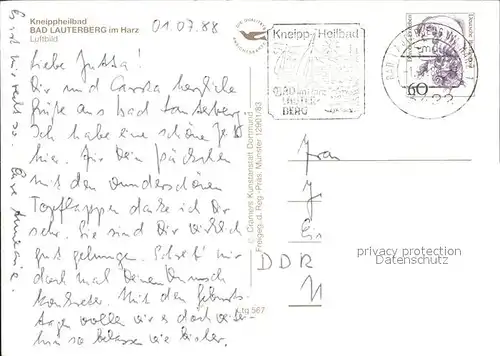 Kneippheilbad
BAD LAUTERBERG im Harz
Luftbild
01.07.88
Liebe Jutta!
Dir und Carsta herzliche
Grüße aus Bad Lauterberg.
Ich habe eine schöne Zeit
hier. Für Dein Päckchen
mit den wunderschönen
Topflappen danke ich Dir
sehr. Sie sind Dir wirklich
gut gelungen. Schreibt mir
doch mal Deinen Wunsch
konkreter. Mit den Geburts-
tagen wollen wir es doch weiter-
hin so belassen wie bisher.
Eure Annemarie
© Cramers Kunstanstalt Dortmund
Freigeg. d. Reg.-Präs. Münster 12901/83
Ltg 567
Kneipp-Heilbad
BAD
LAUTER-
BERG
60
Frau
J
DDR
privacy protection
Datenschutz